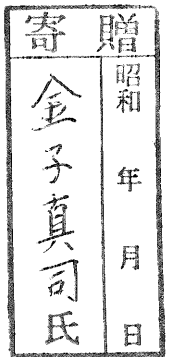 寄贈
昭和 年 月 日
金子真司氏